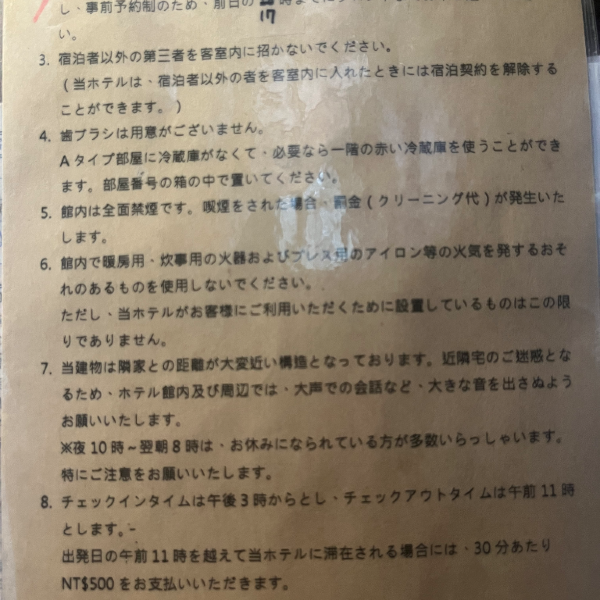 し、事前予約制のため、前日の17時までに
い。
3. 宿泊者以外の第三者を客室内に招かないでください。
(当ホテルは、宿泊者以外の者を客室内に入れたときには宿泊契約を解除する
ことができます。)
4. 歯ブラシは用意がございません。
Aタイプ部屋に冷蔵庫がなくて、必要なら一階の赤い冷蔵庫を使うことができ
ます。部屋番号の箱の中で置いてください。
5. 館内は全面禁煙です。喫煙をされた場合、罰金(クリーニング代)が発生いた
します。
6. 館内で暖房用、炊事用の火器およびプレス用のアイロン等の火気を発するおそ
れのあるものを使用しないでください。
ただし、当ホテルがお客様にご利用いただくために設置しているものはこの限
りでありません。
7. 当建物は隣家との距離が大変近い構造となっております。近隣宅のご迷惑とな
るため、ホテル館内及び周辺では、大声での会話など、大きな音を出さぬよう
お願いいたします。
※夜10時~翌朝8時は、お休みになられている方が多数いらっしゃいます。
特にご注意をお願いいたします。
8. チェックインタイムは午後3時からとし、チェックアウトタイムは午前11時
とします。
出発日の午前11時を越えて当ホテルに滞在される場合には、30分あたり
NT$500をお支払いいただきます。